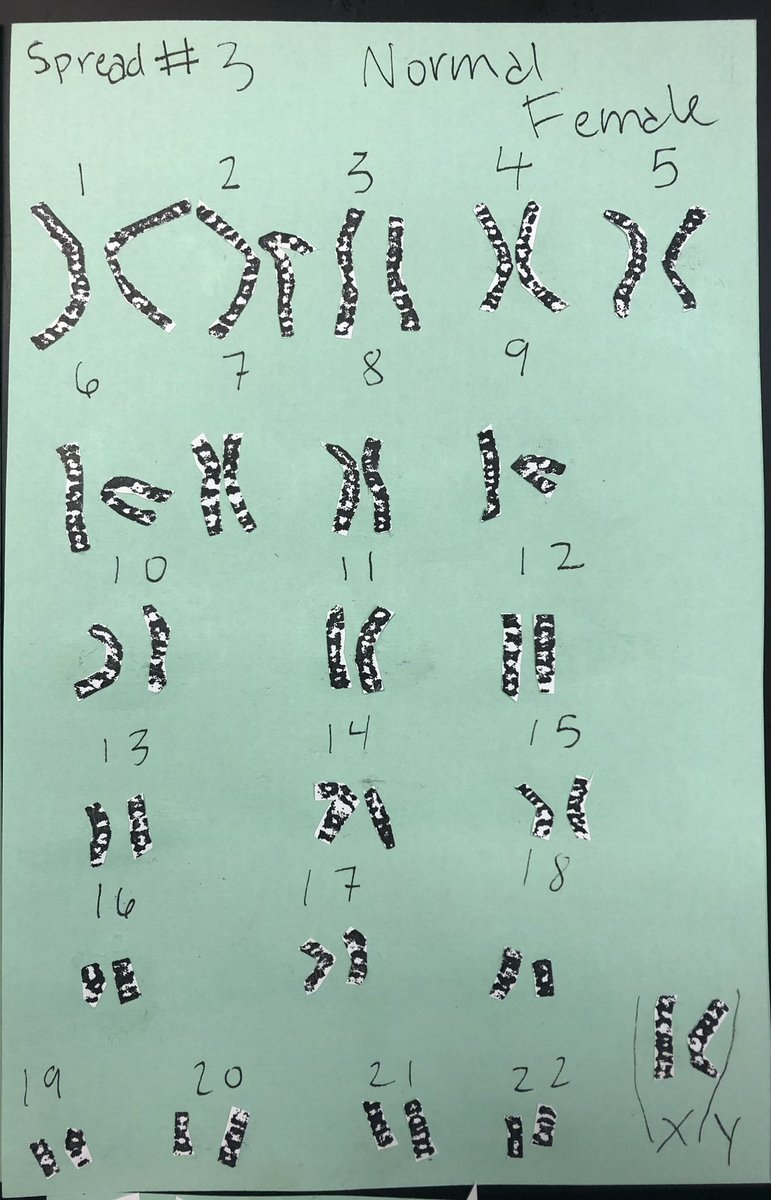 Spread # 3 Normal
Female
1 2 3 4 5
6 7 8 9
10 11 12
13 14 15
16 17 18
19 20 21 22
X/Y